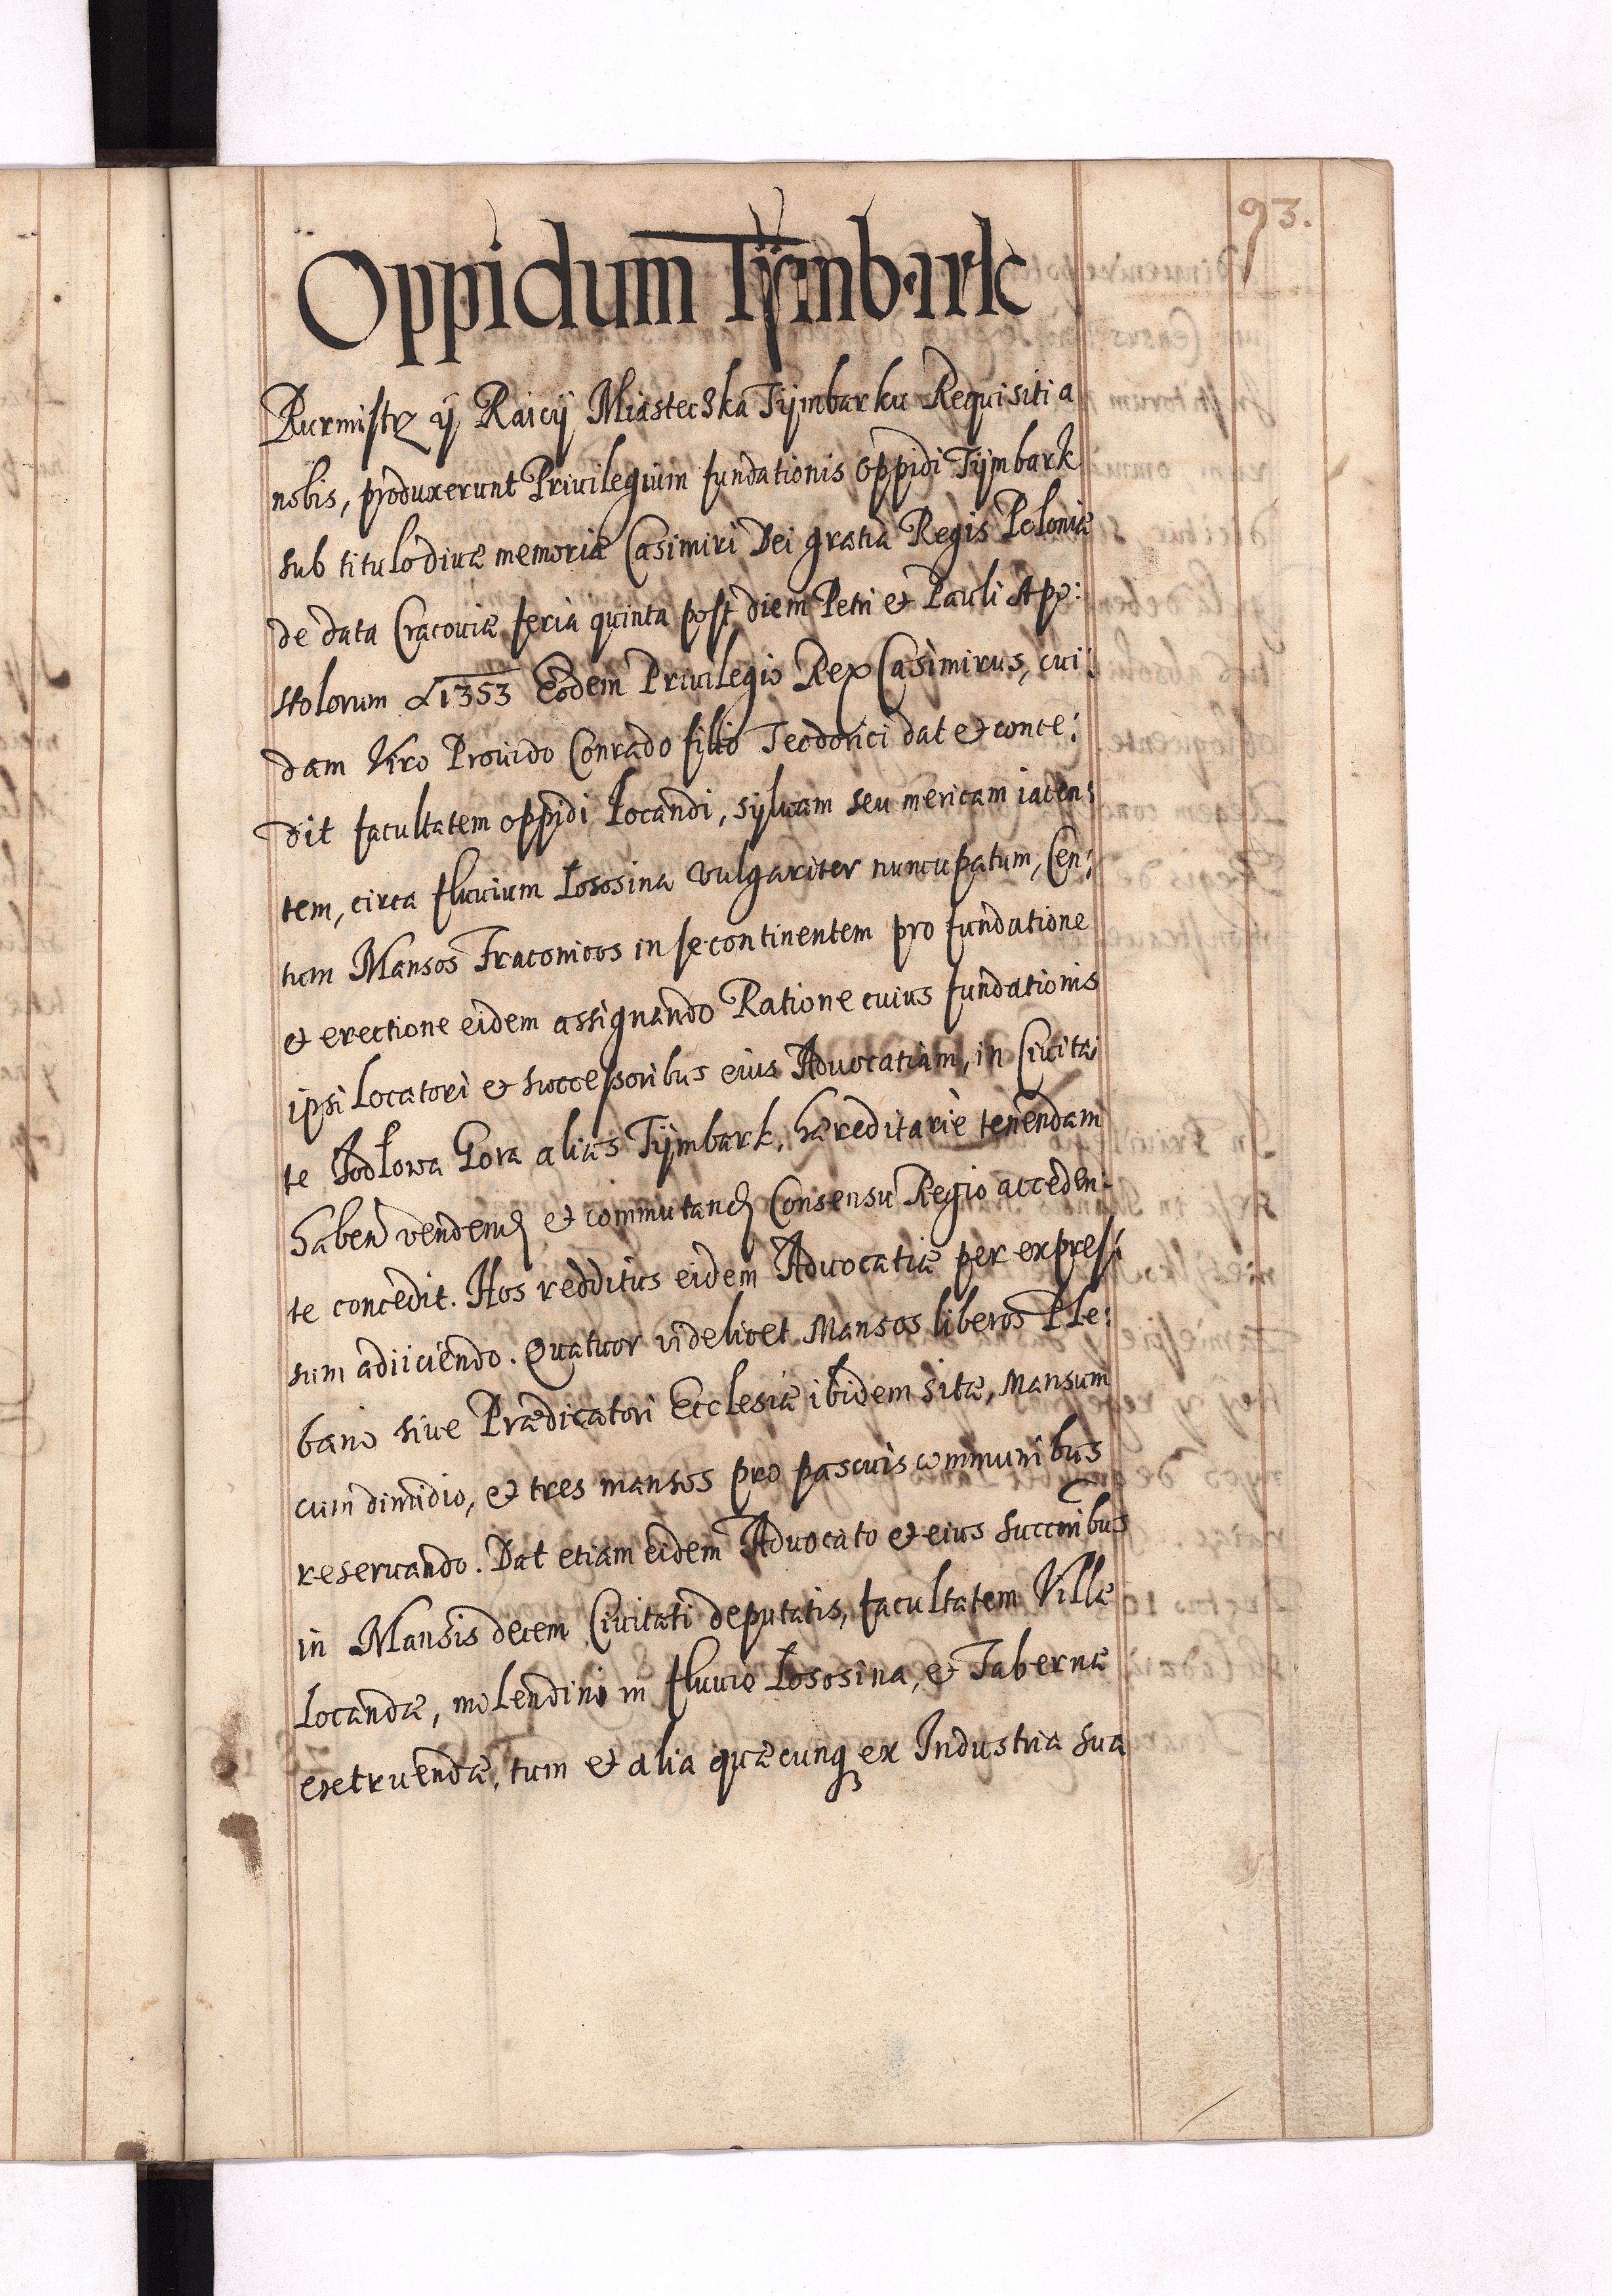 93.
Oppidum Tÿmbark
Burmistrz ÿ Raicÿ Miasteczka Tÿmbarku Requisiti a
nobis, produxerunt Privilegium fundationis oppidi Tÿmbark
sub titulo divæ memoriæ Casimiri Dei gratia Regis Poloniæ
de data Cracoviæ feria quinta post diem Petri et Pauli Apo:
stolorum 1353 Eodem Privilegio Rex Casimirus, cui:
dam Viro Provido Conrado filio Teodorici dat et conce:
dit facultatem oppidi Locandi, sÿluam seu mericam iacen:
tem, circa fluuium Lososina vulgariter nuncupatum, Cen:
tum Mansos Fraconicos in se continentem pro fundatione
et erectione eidem assignando Ratione cuius fundationis
ipsi Locatori et successoribus eius Aduocatiam, in Ciuita:
te Jodłowa Gora alias Tÿmbark, hæreditarie tenendam
haben vendend et commutand Consensu Regio acceden:
te concedit. Hos redditus eidem Aduocatiæ per expres:
sum adiiciendo. Quatuor videlicet Mansos liberos Ple:
bano siue Prædicatori Ecclesiæ ibidem sitæ, Mansum
cum dimidio, et tres mansos pro pascuis communibus
reseruando. Dat etiam eidem Aduocato et eius succribus
in Mansis decem Ciuitati deputatis, facultatem Villæ
Locandæ, molendini in fluuio Lososina, et Tabernæ
exetruendæ, tum et alia quæcunq ex Industria sua